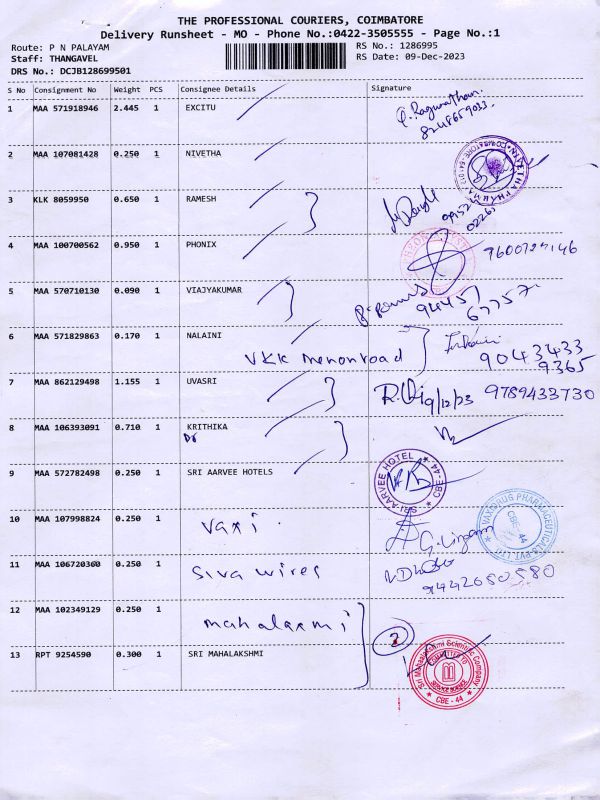 THE PROFESSIONAL COURIERS, COIMBATORE
Delivery Runsheet - MO - Phone No.:0422-3505555 - Page No.:1
Route: P N PALAYAM
Staff: THANGAVEL
DRS No.: DCJB128699501
RS No.: 1286995
RS Date: 09-Dec-2023
S No Consignment No Weight PCS Consignee Details Signature
1 MAA 571918946 2.445 1 EXCITU
2 MAA 107081428 0.250 1 NIVETHA
3 KLK 8059950 0.650 1 RAMESH
4 MAA 100700562 0.950 1 PHONIX
5 MAA 570710130 0.090 1 VIAJYAKUMAR
94451
67757
6 MAA 571829863 0.170 1 NALAINI
VKK menon road
9043433
9365
7 MAA 862129498 1.155 1 UVASRI
9/12/23 9789433730
8 MAA 106393091 0.710 1 KRITHIKA
9 MAA 572782498 0.250 1 SRI AARVEE HOTELS
SRI AARVEE HOTEL CBE-44
10 MAA 107998824 0.250 1 vaxi
VAXIDRUG PHARMACEUTICALS PVT. LTD. CBE-44
11 MAA 106720360 0.250 1 siva wires
9442680580
12 MAA 102349129 0.250 1 mahalaxmi
2
13 RPT 9254590 0.300 1 SRI MAHALAKSHMI
Sri Mahalakshmi Scientific Company
COMMITTED TO
SERVICE SCIENCE
CBE - 44